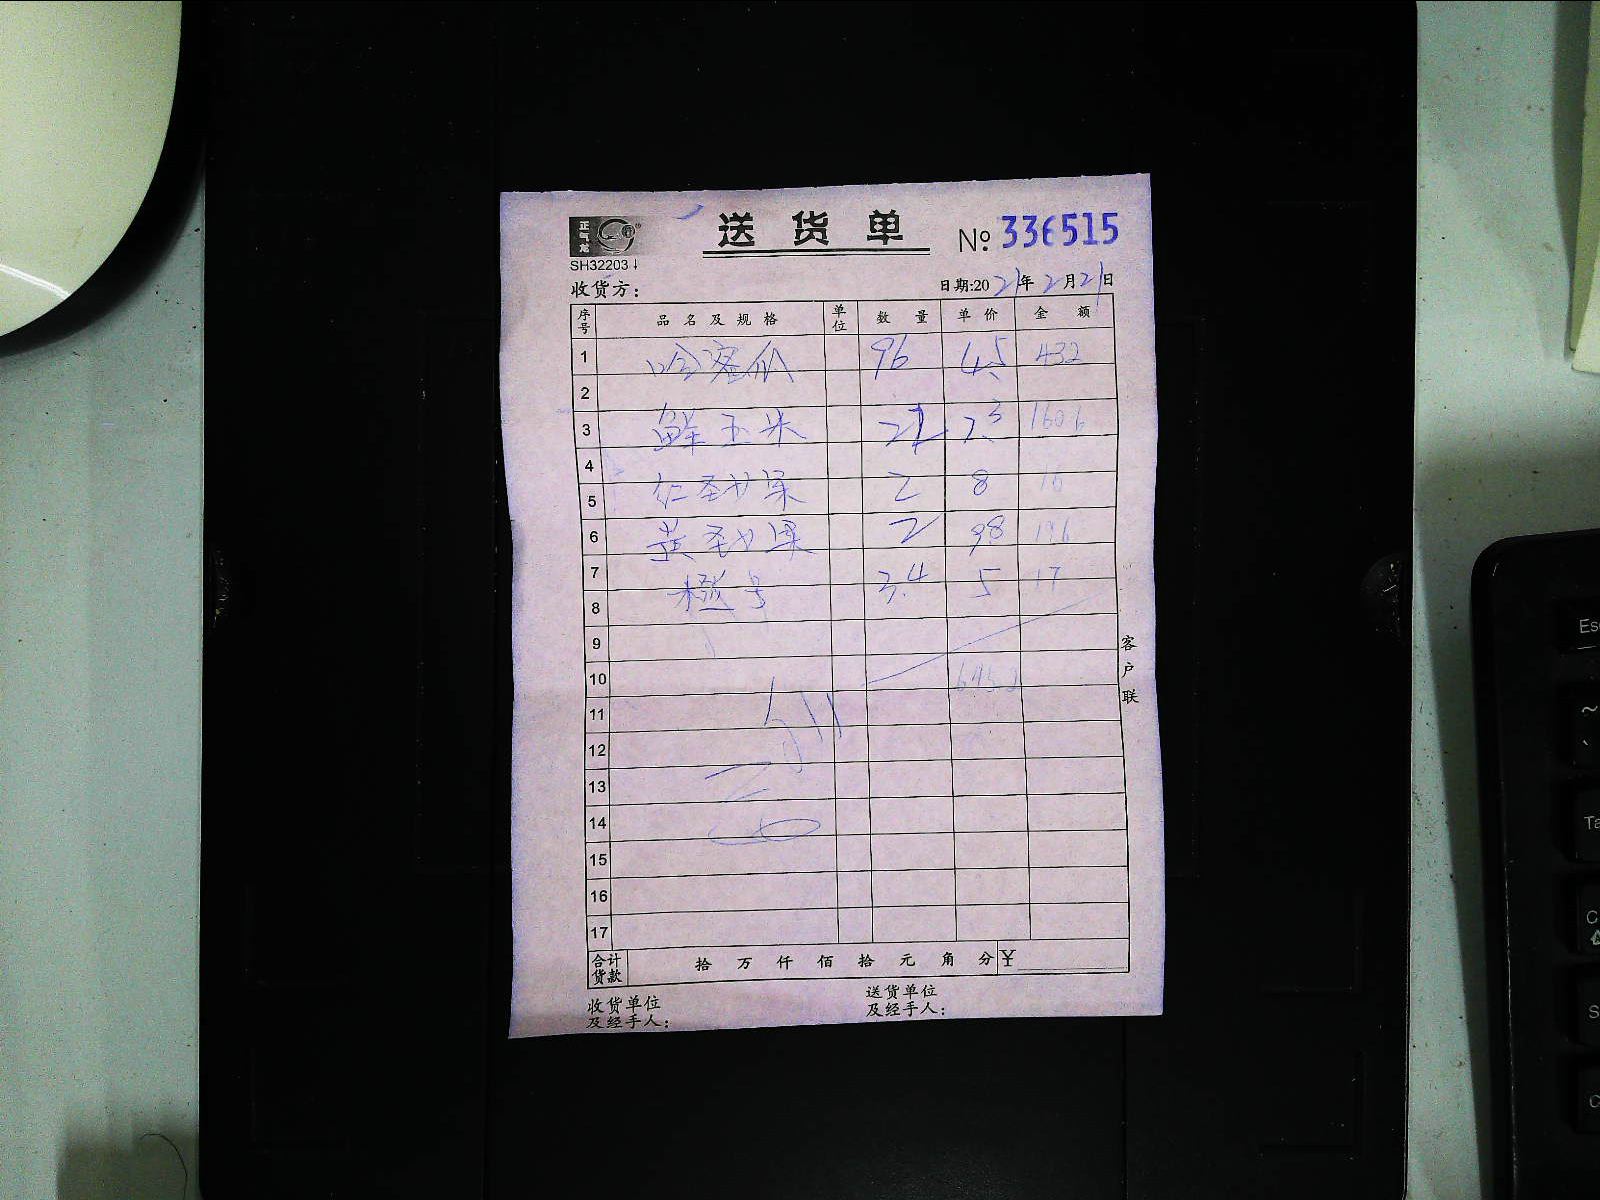 正气龙
送货单 № 336515
SH32203↓
收货方： 日期:2021年2月21日
序号 品名及规格 单位 数量 单价 金额
1 哈密瓜 96 4.5 432
2
3 鲜玉米 7.3 160.6
4
5 红圣女果 2 8 16
6 黄圣女果 2 9.8 19.6
7 橙 3.4 5 17
8
9
10
11
12
13
14
15
16
17
合计货款 拾 万 仟 佰 拾 元 角 分 ¥
收货单位及经手人： 送货单位及经手人：
客户联
Esc
~